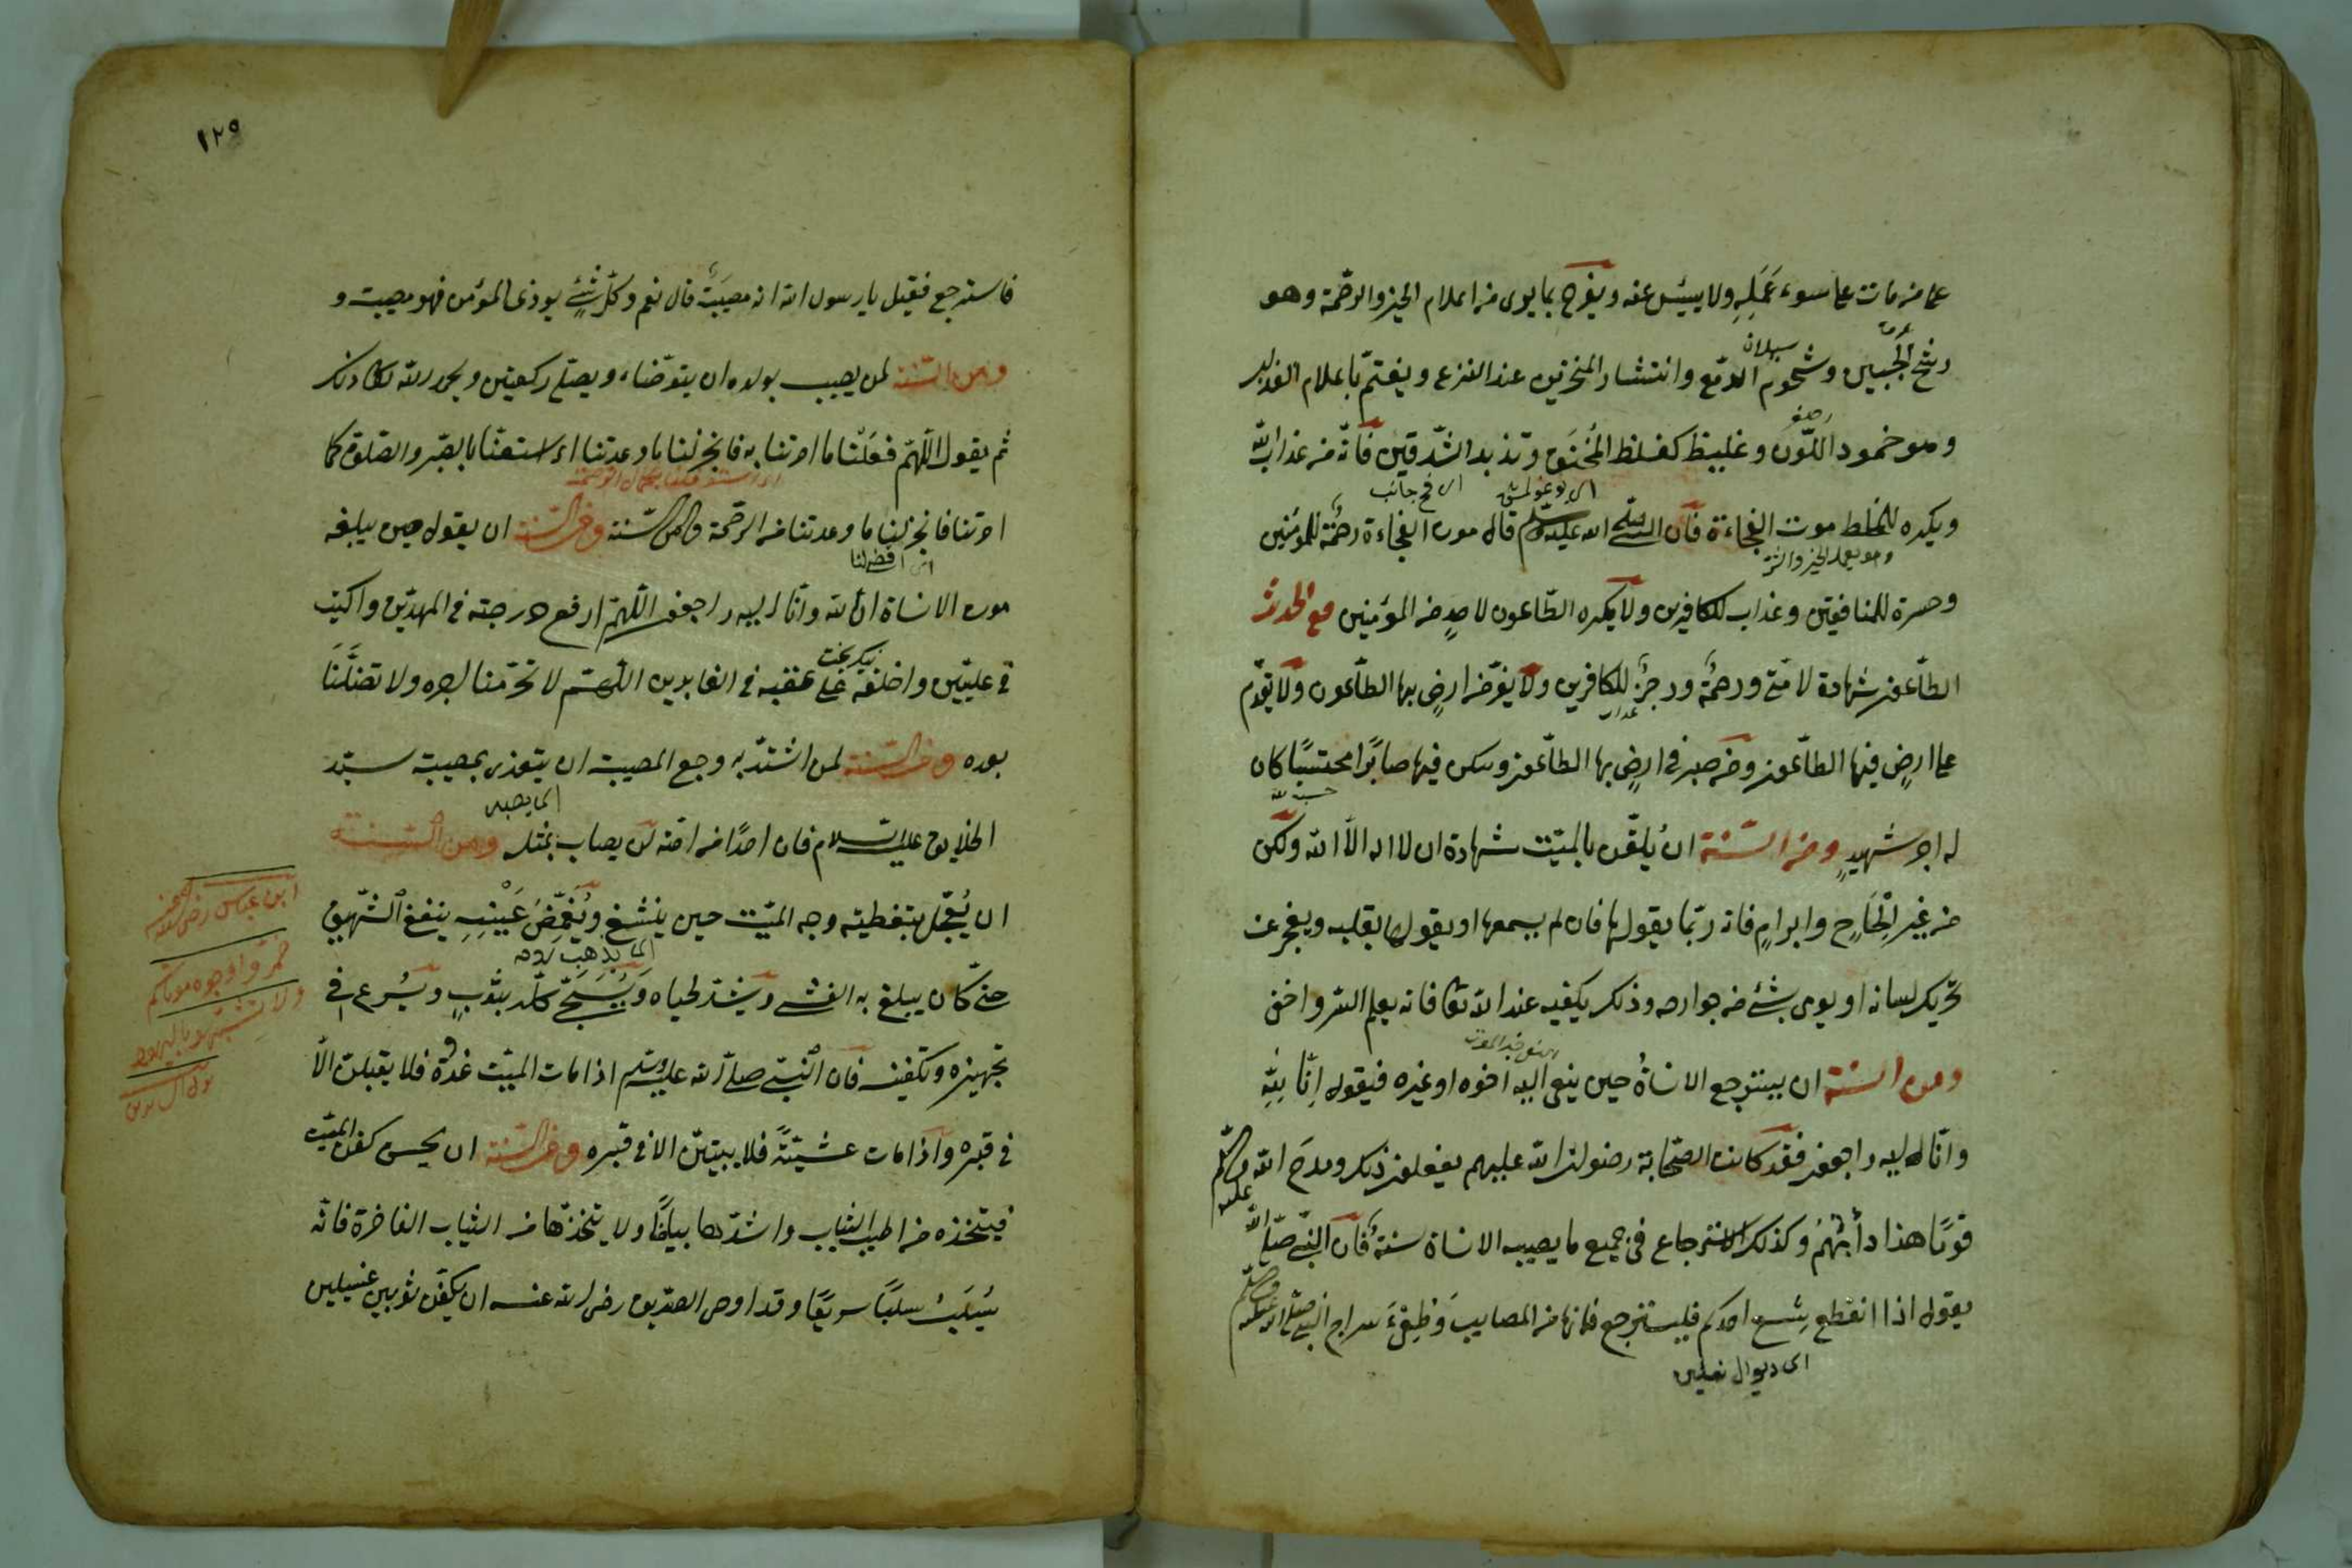 على من مات على سوء عَمَلِهِ ولا ييئس عنه ويفرح بما يرى من اعلام الخير والرحمة وهو
عرق
رشح الجبين وشحوم الدمع وانتشار المنخرين عند النزع ويغتم باعلام
سيلان
وهو خمود اللون وغطيط كغطيط المخنوق وتزبد الشدقين فانه من عذاب الله
ويكره للمخلط موت الفجاءة فان النبي صلى الله عليه وسلم قال موت الفجاءة رحمة للمؤمنين
وهو يعمل الخير والشر
وحسرة للمنافقين وعذاب للكافرين ولا يكره الطاعون لاحد من المؤمنين فع الحدث
الطاعون شهادة لامتي ورحمة ورجز للكافرين ولا يفر من ارض بها الطاعون ولا يقدم
عذاب
على ارض فيها الطاعون ومن صبر في ارض بها الطاعون وسكن فيها صابرا محتسبا كان
حسبة لله
له اجر شهيد ومن السنة ان يلقن بالميت شهادة ان لا اله الا الله ولكن
من غير الحاح وابرام فانه ربما يقولها فان لم يسمعها او يقولها بقلبه ويعجز عن
تحريك لسانه او يومى بشئ من جوارحه وذلك يكفيه عند الله تعالى فانه يعلم السر واخفى
ومن السنة ان يسترجع الانسان حين ينعى اليه اخوه او غيره فيقول انا لله
وانا اليه راجعون فقد كانت الصحابة رضوان الله عليهم يفعلون ذلك ومدح الله
قوما هذا دأبهم وكذلك الاسترجاع في جميع ما يصيب الانسان سنة فان النبي صلى الله عليه وسلم
يقول اذا انقطع شسع احدكم فليسترجع فانها من المصايب وطفئ سراج النبي صلى الله عليه وسلم
اى ديوال نعلين
١٢٩
فاسترجع فقيل يا رسول الله انه مصيبة قال نعم وكل شئ يوذى المؤمن فهو مصيبة و
ومن السنة لمن يصيب بولده ان يتوضاء ويصلى ركعتين ويحمد الله تعالى كذلك
ثم يقول اللهم فعلنا ما امرتنا به فانجز لنا ما وعدتنا اى استعنا بالصبر والصلوة كما
امرتنا فانجز لنا ما وعدتنا من الرحمة ومن السنة ان يقول حين يبلغه
موت الانسان انا لله وانا اليه راجعون اللهم ارفع درجته في المهديين واكتبه
في عليين واخلفه على عقبه في الغابرين اللهم لا تحرمنا اجره ولا تضلنا
بعده ومن السنة لمن اشتد به وجع المصيبة ان يتعزى بمصيبة سيد
الخلايق عليه السلام فان احدا من امته لن يصاب بمثله ومن السنة
ان يعجل بتغطية وجه الميت حين ينشغ ويغمض عينيه
حتى كان يبلغ به الغشى ويشد لحياه ويسجى كله بثوب ويسرع في
تجهيزه وتكفينه فان النبي صلى الله عليه وسلم اذا مات الميت غدوة فلا يقيلن الا
في قبره واذا مات عشية فلا يبيتن الا في قبره ومن السنة ان يحسن كفن الميت
فيتخذه من اطيب الثياب واشدها بياضا ولا يتخذها من الثياب الفاخرة فانه
يسلب سلبا سريعا وقد اوصى الصديق رضى الله عنه ان يكفن ثوبين غسيلين
ابن عباس رضى الله عنه
خمروا وجوه موتاكم
ولا تشبهوا باليهود